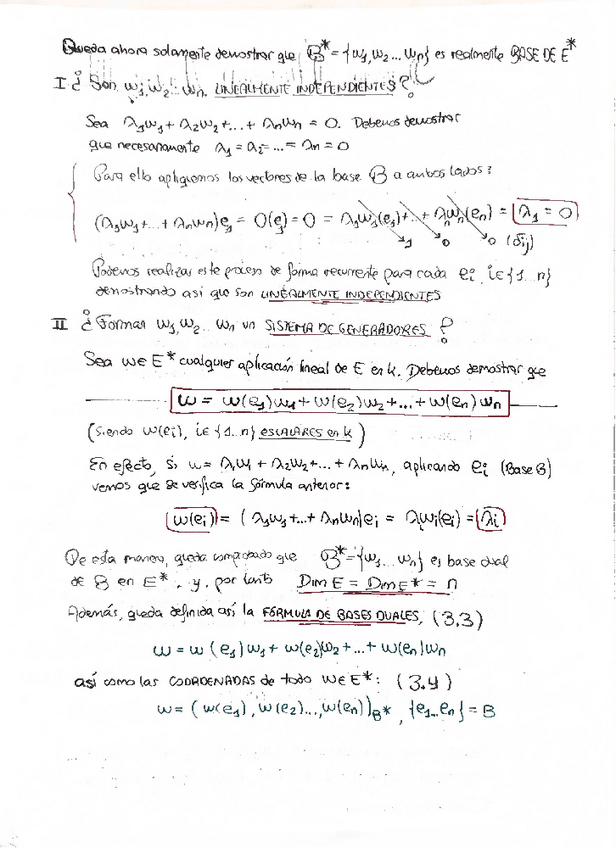 Queda ahora solamente demostrar que B* = {w₁, w₂ ... wₙ} es realmente BASE DE E*
I ¿ Son w₁, w₂ ... wₙ LINEALMENTE INDEPENDIENTES ?
Sea λ₁w₁ + λ₂w₂ + ... + λₙwₙ = 0. Debemos demostrar
que necesariamente λ₁ = λ₂ = ... = λₙ = 0
Para ello apliquemos los vectores de la base B a ambos lados:
(λ₁w₁ + ... + λₙwₙ)e₁ = 0(e₁) = 0 = λ₁w₁(e₁) + ... + λₙwₙ(eₙ) = λ₁ = 0
1 0 0 (δij)
Podemos realizar este proceso de forma recurrente para cada ei, i∈{1...n}
demostrando así que son LINEALMENTE INDEPENDIENTES
II ¿ Forman w₁, w₂ ... wₙ un SISTEMA DE GENERADORES ?
Sea w∈E* cualquier aplicación lineal de E en k. Debemos demostrar que
w = w(e₁)w₁ + w(e₂)w₂ + ... + w(eₙ)wₙ
(siendo w(ei), i∈{1...n} ESCALARES en k)
En efecto, si w = λ₁w₁ + λ₂w₂ + ... + λₙwₙ, aplicando ei (Base B)
vemos que se verifica la fórmula anterior:
w(ei) = (λ₁w₁ + ... + λₙwₙ)ei = λiwi(ei) = λi
De esta manera, queda comprobado que B* = {w₁ ... wₙ} es base dual
de B en E*, y, por tanto Dim E = Dim E* = n
Además, queda definida así la FÓRMULA DE BASES DUALES, (3.3)
w = w(e₁)w₁ + w(e₂)w₂ + ... + w(eₙ)wₙ
así como las COORDENADAS de todo w∈E*: (3.4)
w = (w(e₁), w(e₂) ..., w(eₙ))B*, {e₁...eₙ} = B